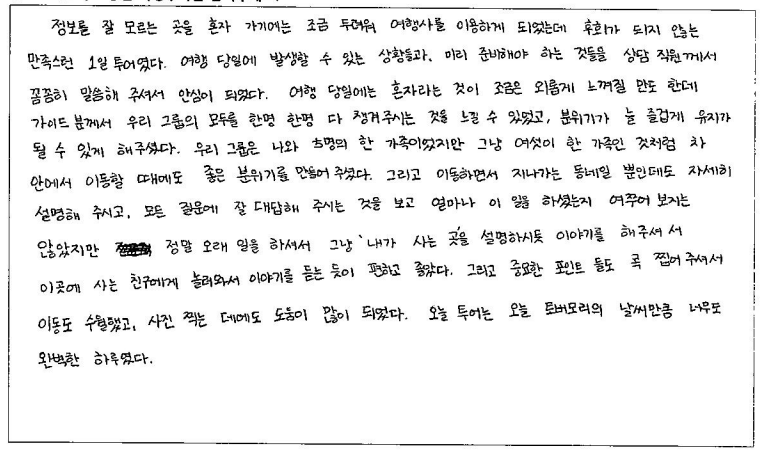 정보를 잘 모르는 곳을 혼자 가기에는 조금 두려워 여행사를 이용하게 되었는데 후회가 되지 않는
만족스런 1일 투어였다. 여행 당일에 발생할 수 있는 상황들과, 미리 준비해야 하는 것들을 상담 직원께서
꼼꼼히 말씀해 주셔서 안심이 되었다. 여행 당일에는 혼자라는 것이 조금은 외롭게 느껴질 만도 한데
가이드 분께서 우리 그룹의 모두를 한명 한명 다 챙겨주시는 것을 느낄 수 있었고, 분위기가 늘 즐겁게 유지가
될 수 있게 해주셨다. 우리 그룹은 나와 5명의 한 가족이었지만 그냥 여섯이 한 가족인 것처럼 차
안에서 이동할 때에도 좋은 분위기를 만들어 주셨다. 그리고 이동하면서 지나가는 동네일 뿐인데도 자세히
설명해 주시고, 모든 질문에 잘 대답해 주시는 것을 보고 얼마나 이 일을 하셨는지 여쭈어 보지는
않았지만 정말 오래 일을 하셔서 그냥 '내가 사는 곳'을 설명하시듯 이야기를 해주셔서
이곳에 사는 친구에게 놀러와서 이야기를 듣는 듯이 편하고 좋았다. 그리고 중요한 포인트 들도 콕 찝어 주셔서
이동도 수월했고, 사진 찍는 데에도 도움이 많이 되었다. 오늘 투어는 오늘 토버모리의 날씨만큼 너무도
완벽한 하루였다.